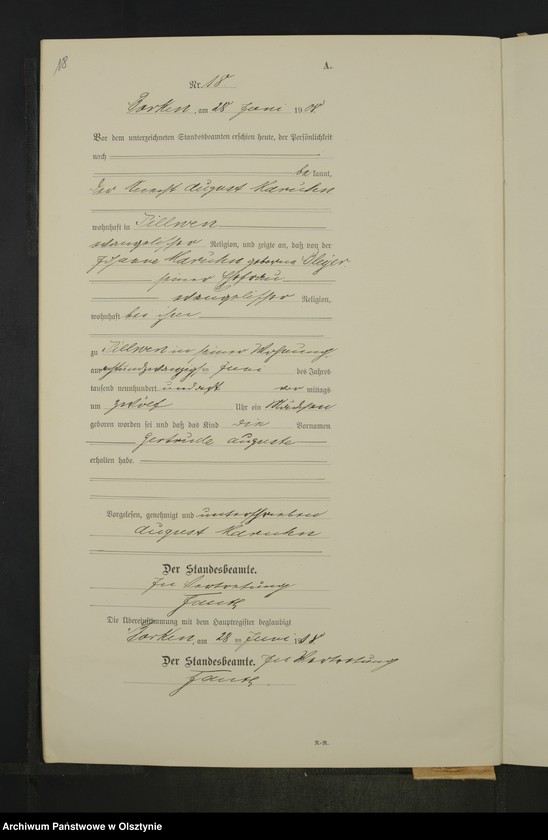 18
A.
Nr. 18
Sorken, am 28 Juni 1908
Vor dem unterzeichneten Standesbeamten erschien heute, der Persönlichkeit
nach
be kannt,
der Knecht August Karuhn
wohnhaft in Tillwen
evangelischer Religion, und zeigte an, daß von der
Karuhn geborene
seiner Ehefrau
evangelischer Religion,
wohnhaft bei ihm
zu Tillwen in seiner Wohnung
am achtundzwanzigsten Juni des Jahres
tausend neunhundert und acht vor mittags
um zwölf Uhr ein Mädchen
geboren worden sei und daß das Kind die Vornamen
Gertrude Auguste
erhalten habe.
Vorgelesen, genehmigt und unterschrieben
August Karuhn
Der Standesbeamte.
In Vertretung
Die Übereinstimmung mit dem Hauptregister beglaubigt
Sorken, am 28 ten Juni 1908
Der Standesbeamte. In Vertretung
K.-R.
Archiwum Państwowe w Olsztynie